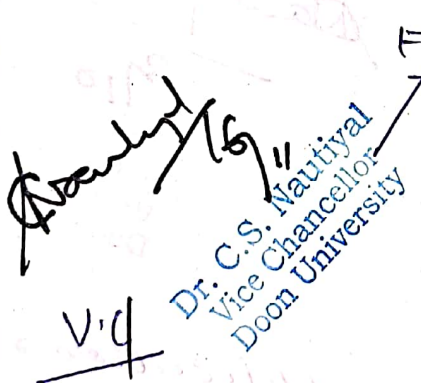 F
CNautiyal/16/11
Dr. C.S. Nautiyal
Vice Chancellor
Doon University
V.C